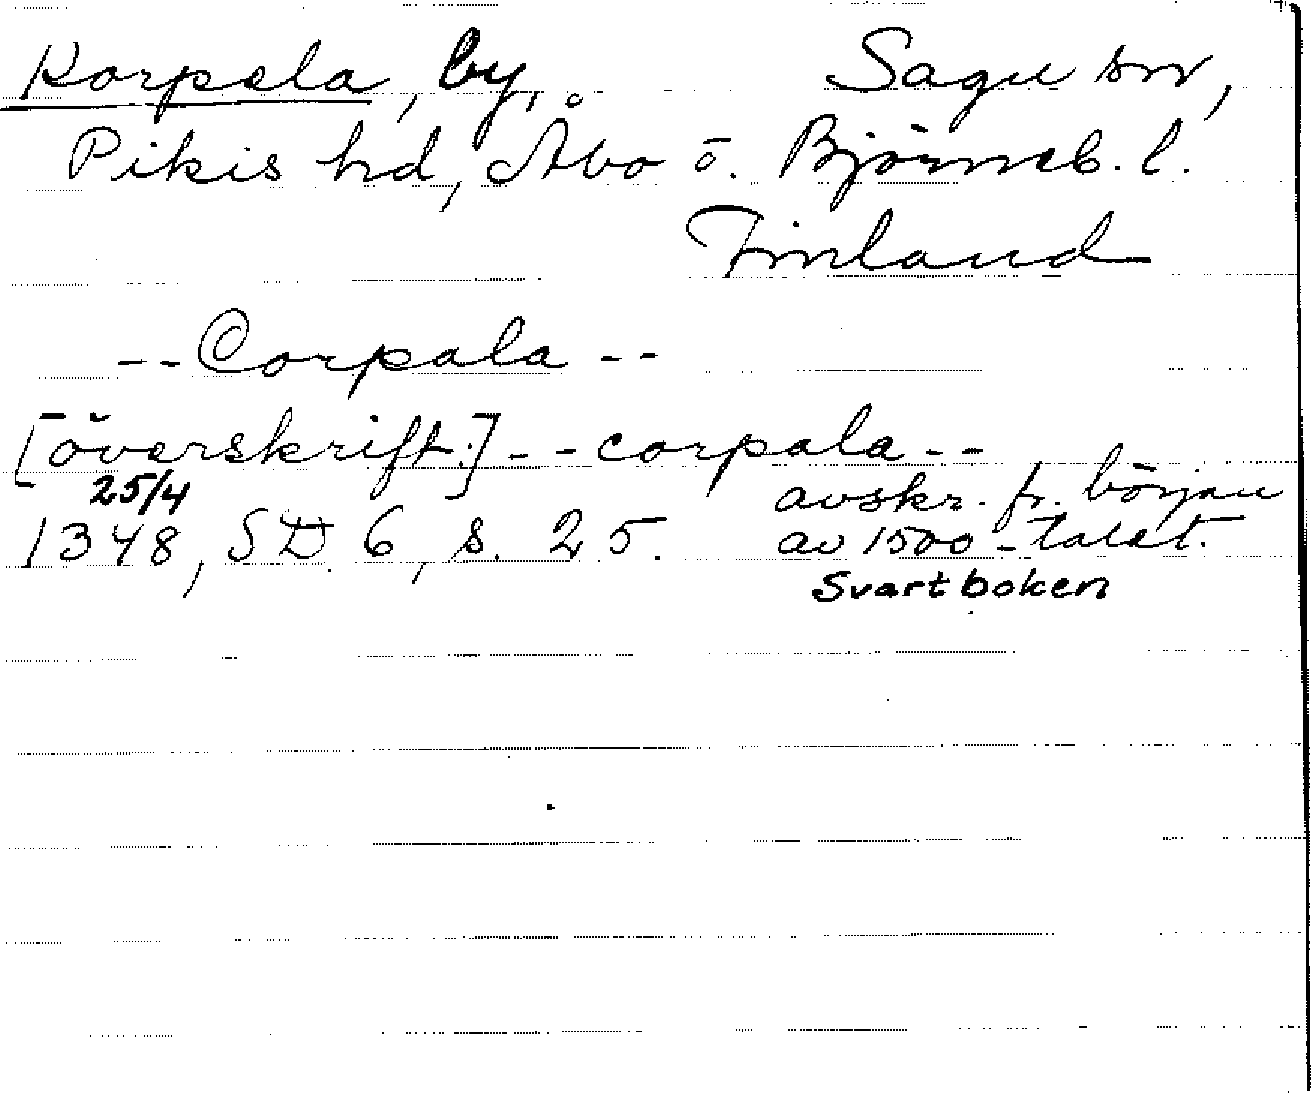 Korpela, by, Sagu sn,
Pikis hd, Åbo o. Björneb. l.
Finland
-- Corpala --
[överskrift:] -- corpala --
25/4 avskr. fr. början
1348, SD 6, s. 25. av 1500-talet.
Svartboken